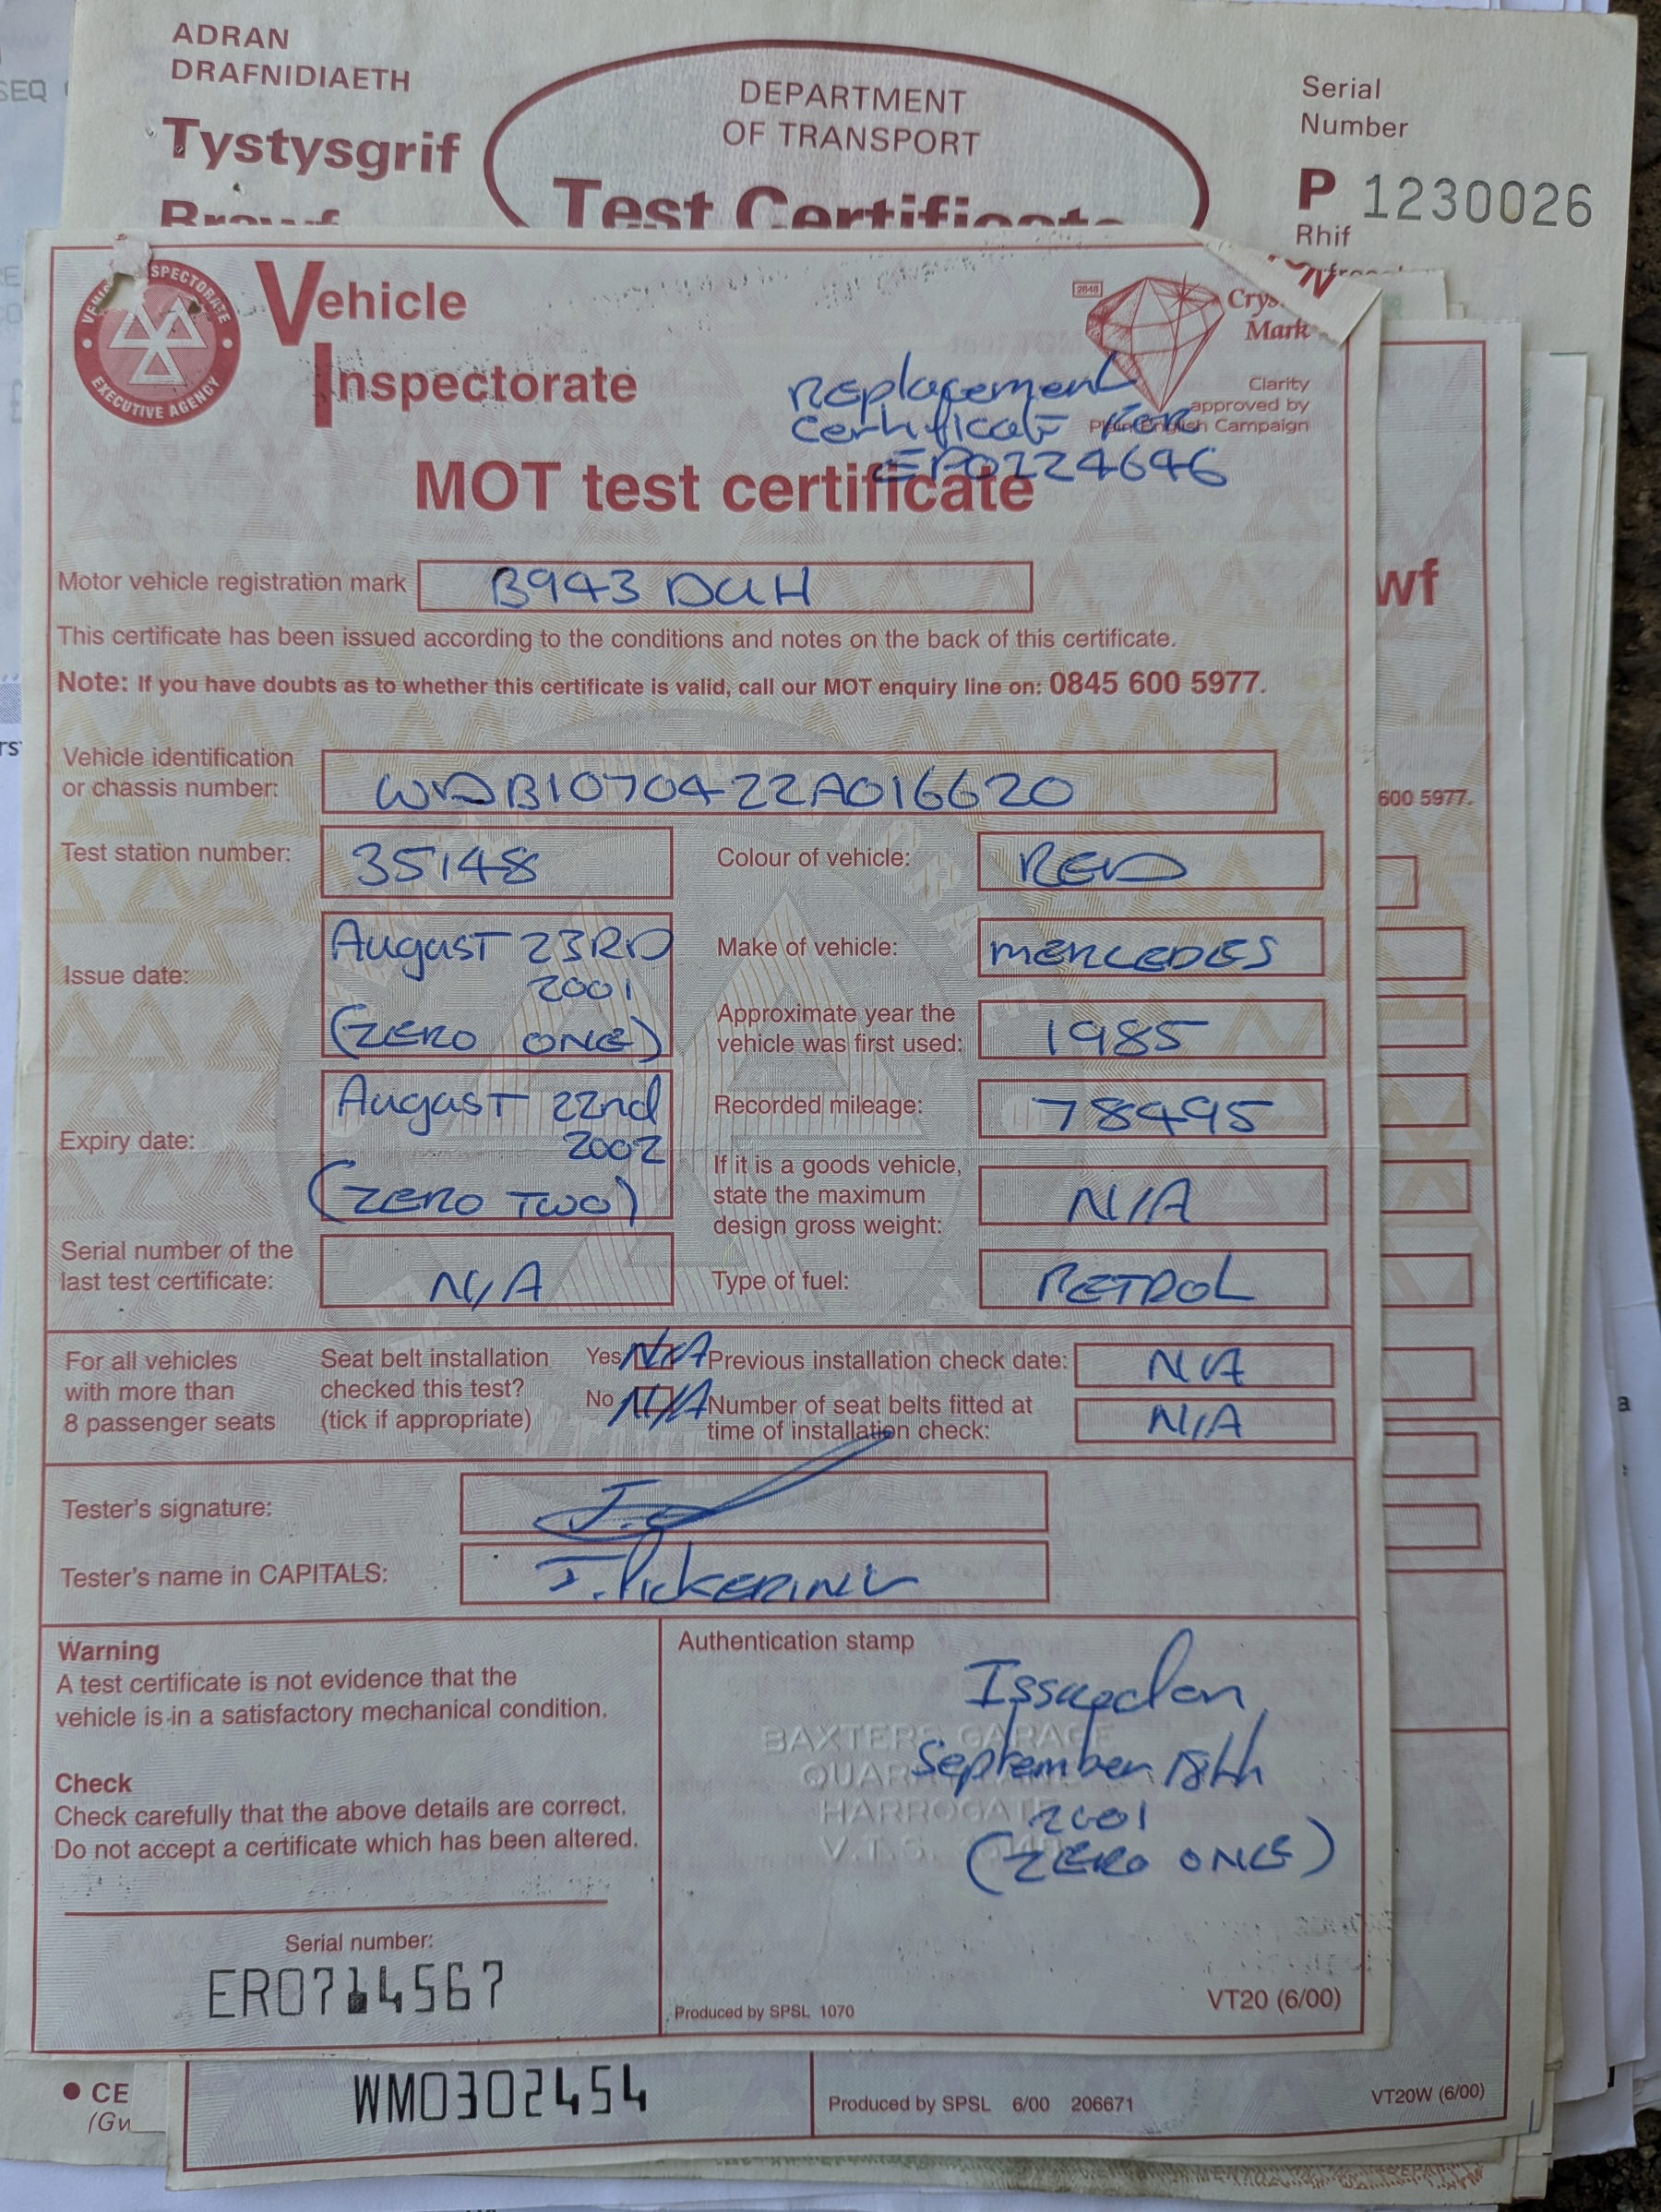 ADRAN
DRAFNIDIAETH
Tystysgrif
DEPARTMENT
OF TRANSPORT
Test Certificate
Serial
Number
P 1230026
Rhif
SEQ
VEHICLE INSPECTORATE
EXECUTIVE AGENCY
Vehicle
Inspectorate
2848
Mark
Clarity
approved by
Plain English Campaign
Replacement
Certificate FOR
MOT test certificate
Motor vehicle registration mark B943 DUH
This certificate has been issued according to the conditions and notes on the back of this certificate.
Note: If you have doubts as to whether this certificate is valid, call our MOT enquiry line on: 0845 600 5977.
Vehicle identification
or chassis number: WDB1070422A016620
Test station number: 35148
Colour of vehicle: RED
Issue date: August 23RD
2001
(ZERO ONE)
Make of vehicle: MERCEDES
Approximate year the
vehicle was first used: 1985
Expiry date: August 22nd
2002
(ZERO TWO)
Recorded mileage: 78495
If it is a goods vehicle,
state the maximum
design gross weight: N/A
Serial number of the
last test certificate: N/A
Type of fuel: PETROL
For all vehicles
with more than
8 passenger seats
Seat belt installation
checked this test?
(tick if appropriate)
Yes N/A
No N/A
Previous installation check date: N/A
Number of seat belts fitted at
time of installation check: N/A
Tester's signature:
Tester's name in CAPITALS: J. PICKERING
Warning
A test certificate is not evidence that the
vehicle is in a satisfactory mechanical condition.
Check
Check carefully that the above details are correct.
Do not accept a certificate which has been altered.
Serial number:
ER0714567
Authentication stamp
Issued on
September 18th
2001
(ZERO ONE)
BAXTERS GARAGE
HARROGATE
V.T.S.
Produced by SPSL 1070
VT20 (6/00)
wf
600 5977.
CE
WM0302454
Produced by SPSL 6/00 206671
VT20W (6/00)